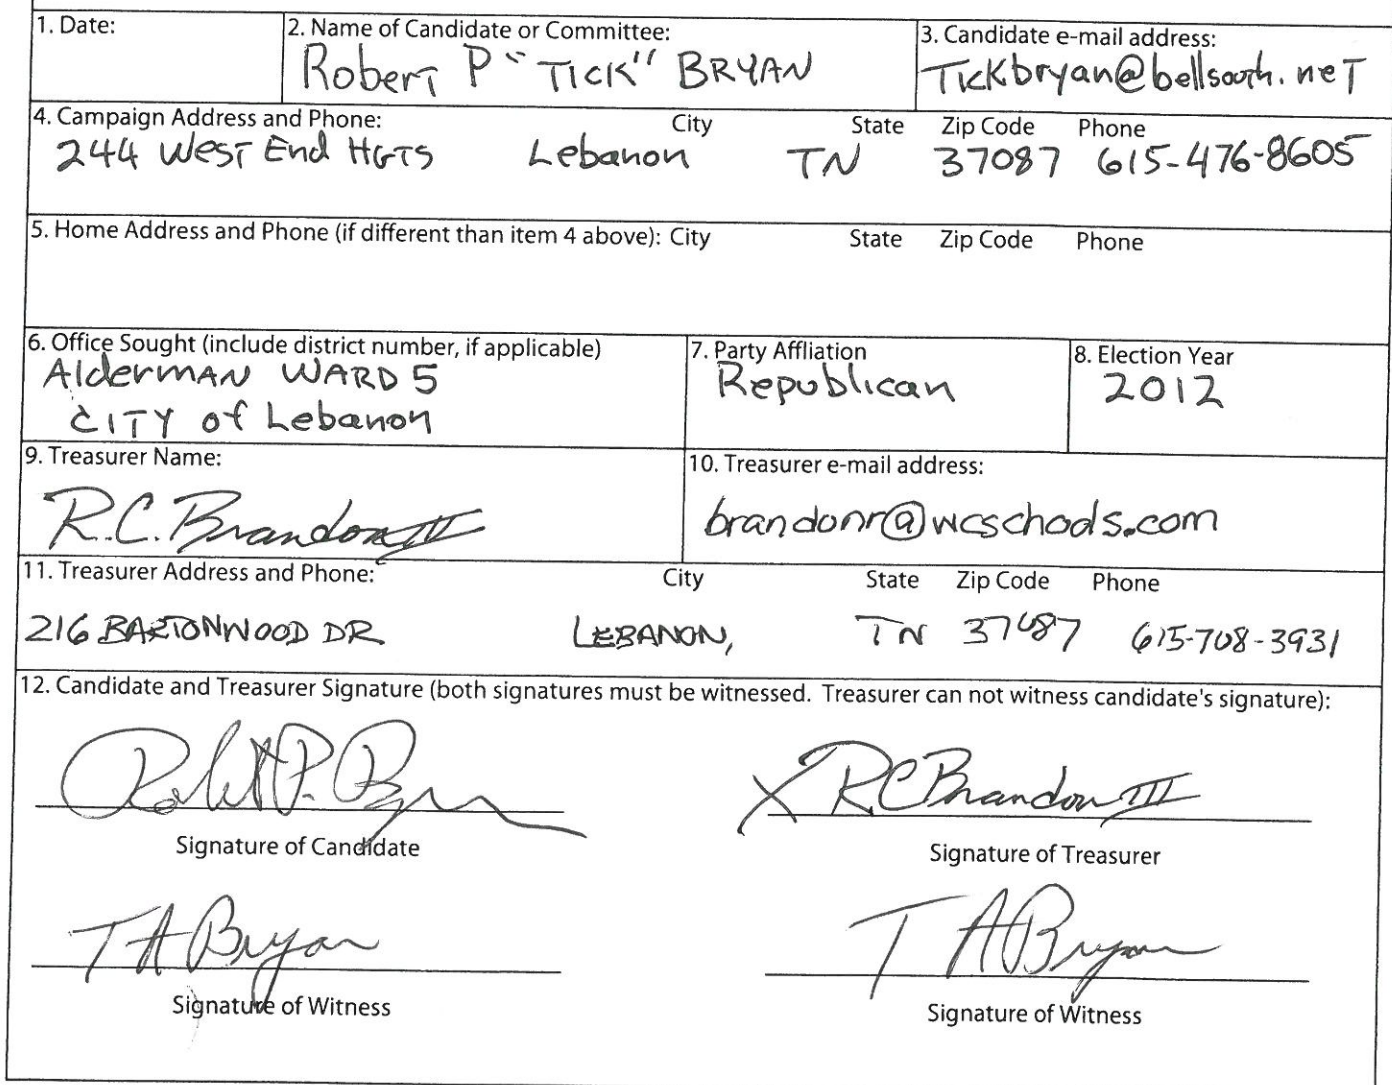 1. Date:
2. Name of Candidate or Committee:
Robert P "TICK" BRYAN
3. Candidate e-mail address:
Tickbryan@bellsouth.net
4. Campaign Address and Phone: City State Zip Code Phone
244 West End HGTS Lebanon TN 37087 615-476-8605
5. Home Address and Phone (if different than item 4 above): City State Zip Code Phone
6. Office Sought (include district number, if applicable)
Alderman WARD 5
CITY of Lebanon
7. Party Affliation
Republican
8. Election Year
2012
9. Treasurer Name:
R.C. Brandon III
10. Treasurer e-mail address:
brandonr@wcschools.com
11. Treasurer Address and Phone: City State Zip Code Phone
216 BARTONWOOD DR LEBANON, TN 37087 615-708-3931
12. Candidate and Treasurer Signature (both signatures must be witnessed. Treasurer can not witness candidate's signature):
Robert P. Bryan X RC Brandon III
Signature of Candidate Signature of Treasurer
T A Bryan T A Bryan
Signature of Witness Signature of Witness